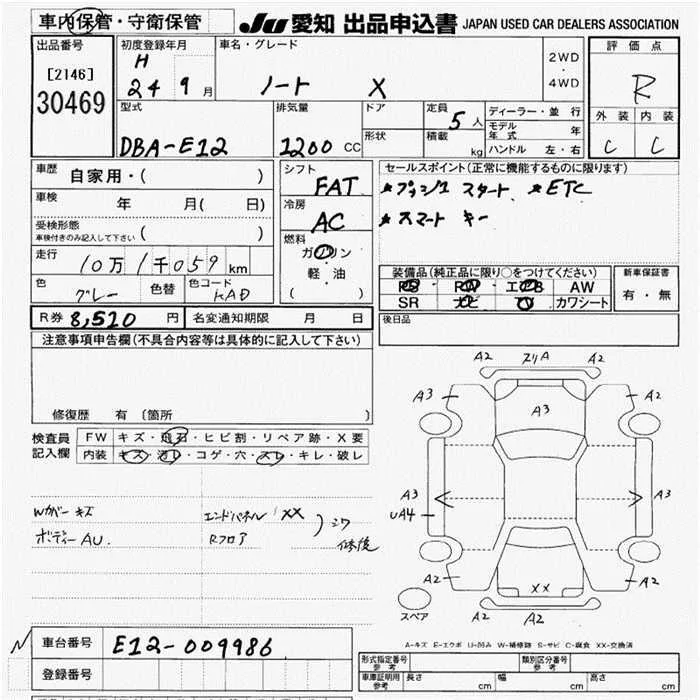 車内保管・守衛保管
JU 愛知 出品申込書 JAPAN USED CAR DEALERS ASSOCIATION
出品番号
[2146]
30469
初度登録年月
H
24 9 月
車名・グレード
ノート X
2WD
・
4WD
評価点
R
外装 内装
C C
型式
DBA-E12
排気量
1200 CC
ドア
形状
定員
5 人
積載
kg
ディーラー・並 行
モデル年式 年
ハンドル 左・右
車歴
自家用・( )
車検
年 月( 日)
受検形態
車検付きのみ記入して下さい ( )
走行
10万1千059 km
色
グレー
色替
色コード
KAD
シフト
FAT
冷房
AC
燃料
ガソリン
軽・油
( )
セールスポイント(正常に機能するものに限ります)
★プッシュスタート ★ETC
★スマートキー
装備品(純正品に限り○をつけてください)
PS PW エアB AW
SR ナビ TV カワシート
新車保証書
有・無
R券 8,510 円 名変通知期限 月 日
後日品
注意事項申告欄(不具合内容等は具体的に記入して下さい)
修復歴 有 〔箇所 〕
検査員
記入欄
FW キズ・飛石・ヒビ割・リペア跡・X要
内装 キズ・汚レ・コゲ・穴・スレ・キレ・破レ
Wカバーキズ
ボディーAU.
エンドパネル XX
Rフロア
シワ
修復
A2 A2
A3 A2
A3
A3 A3
UA4
A2 A2
XX
A2 A2
スペア
A-キズ E-エクボ U-凹み W-補修跡 S-サビ C-腐食 XX-交換済
車台番号 E12-009986
登録番号
形式指定番号
参考
類別区分番号
参考
車庫証明用
参考
長さ cm 幅 cm 高さ cm